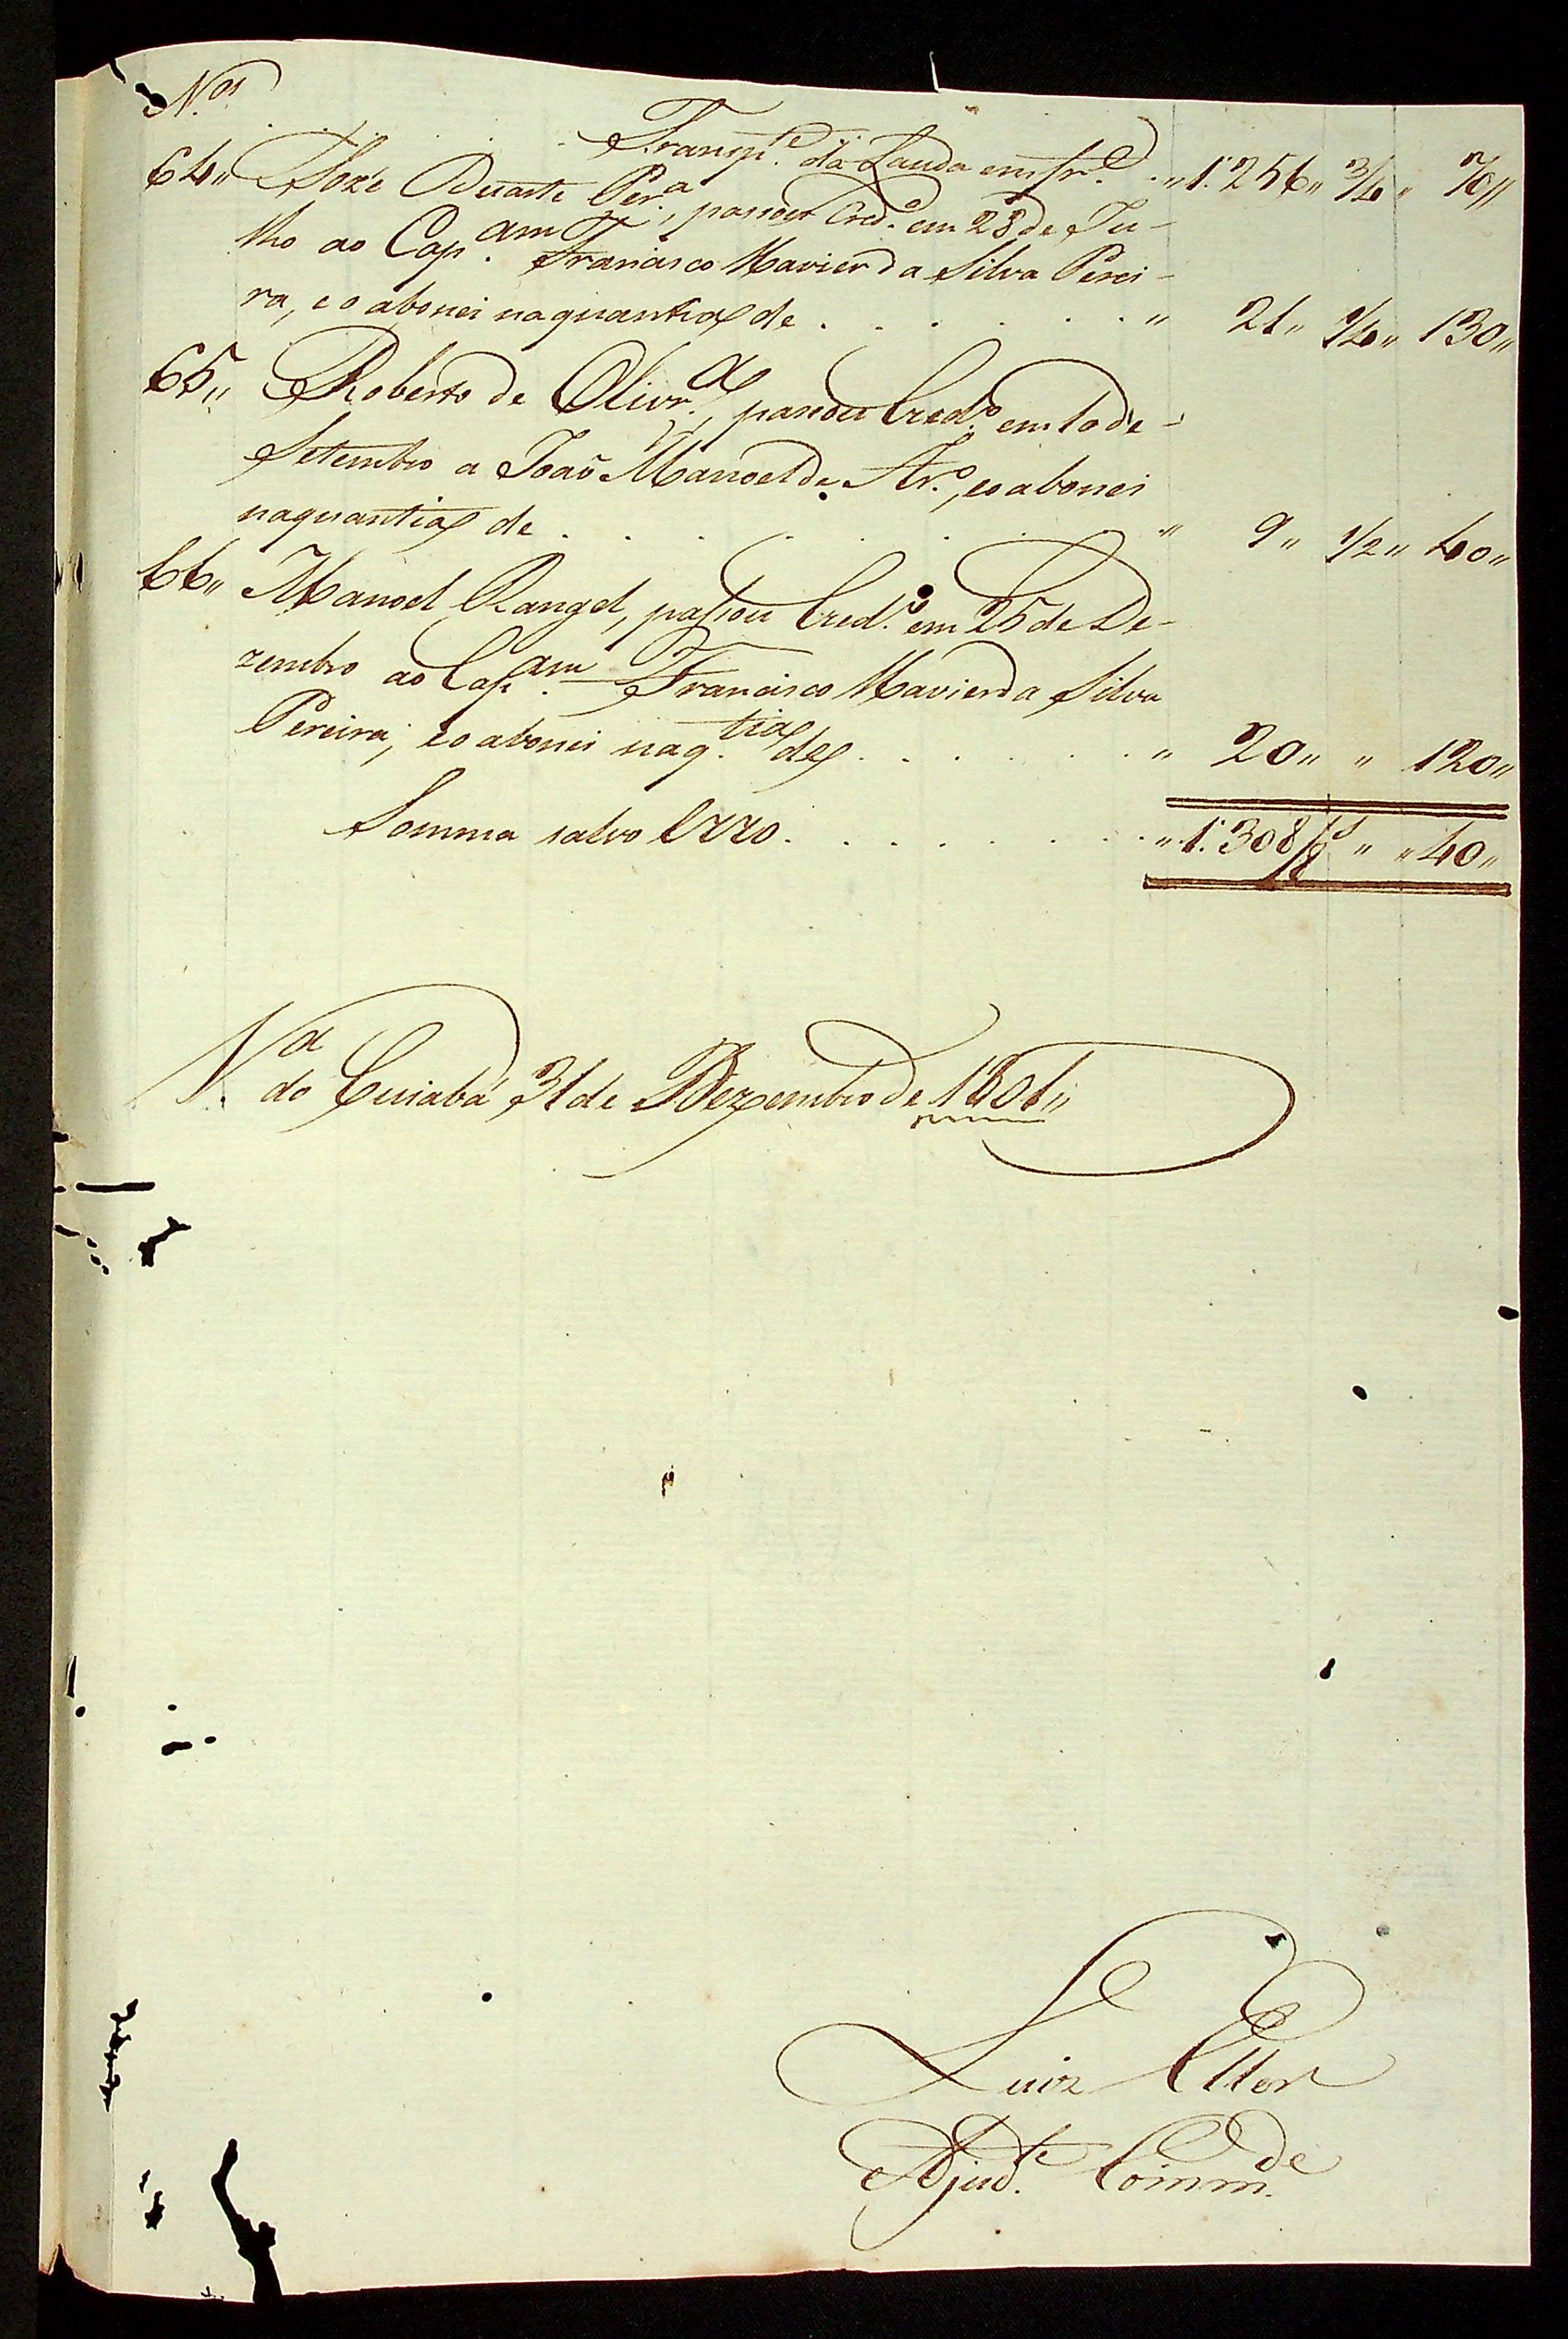 N.os
Transp.e da Lauda emfr.e . „ 1:256 „ 3/4 „ 70 „
64 „ Jozé Duarte Per.a, passou Cred.o em 28 de Ju-
lho ao Cap.am Francisco Xavier da Silva Perei-
ra, e o abonei na quantia de . . . . . . „ 21 „ 1/4 „ 130 „
65 „ Roberto de Olivr.a, passou Cred.o em 10 de
Setembro a João Manoel de Ar.o, e o abonei
na quantia de . . . . . . „ 9 „ 1/2 „ 40 „
66 „ Manoel Rangel, passou Cred.o em 25 de De-
zembro ao Cap.am Francisco Xavier da Silva
Pereira, e o abonei na q.tia de . . . . . . „ 20 „ „ 120 „
Somma salvo Erro . . . . . . „ 1:308 „ „ 40 „
V.a do Cuiabá 31 de Dezembro de 1801 „
Luiz
Ajud.te Comm.de